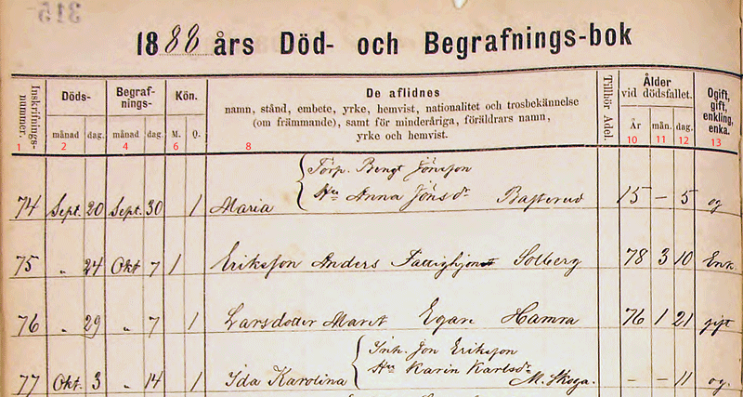 315
1888 års Död- och Begrafnings-bok
Inskrifnings-
nummer.
Döds-
månad dag.
Begraf-
nings-
månad dag.
Kön.
M. Q.
De aflidnes
namn, stånd, embete, yrke, hemvist, nationalitet och trosbekännelse
(om främmande), samt för minderåriga, föräldrars namn,
yrke och hemvist.
Tillhör Adel.
Ålder
vid dödsfallet.
År mån. dag.
Ogift,
gift,
enkling,
enka.
1 2 4 6 8 10 11 12 13
Torp. Bengt Jönsson
74 Sept. 20 Sept. 30 1 Maria Hu Anna Jönsdr 15 — 5 og
75 „ 24 Okt 7 1 Eriksson Anders Fattighjon Solberg 78 3 10 Enk
76 „ 29 „ 7 1 Larsdotter Maret Egare Hamra 76 1 21 gift
Jon Eriksson
77 Okt. 3 „ 14 1 Ida Karolina Hu Karin Karlsdr M. Skoga. — — 11 og.